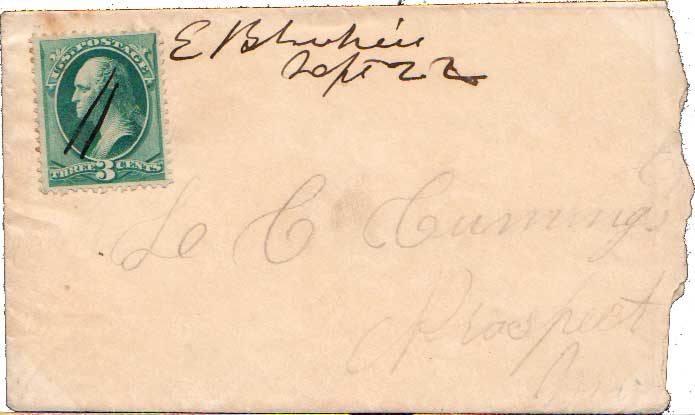 U.S. POSTAGE
THREE 3 CENTS
E
Sept 22
C Cummings
Prospect